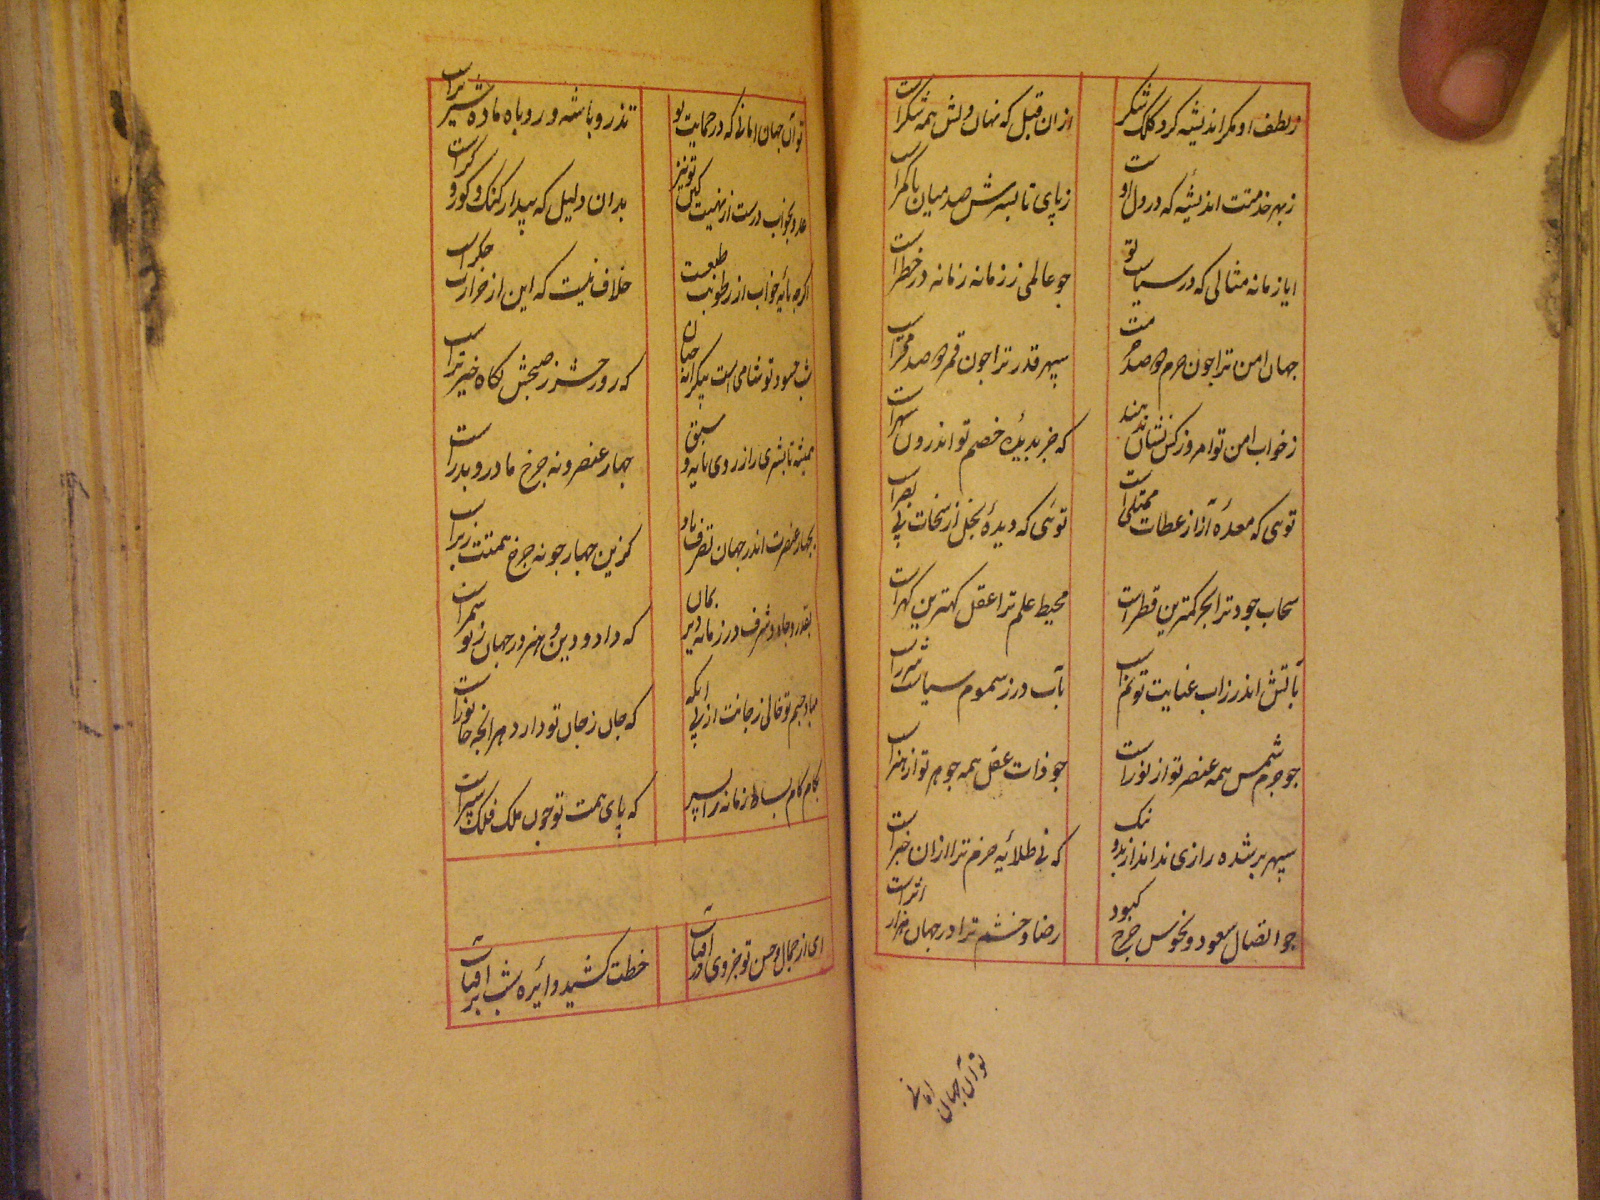 زلطف او مکر اندیشه کرد کلک شکر
ازان قبل که نهان ولش همه شکراست
زبهر خدمتت اندیشهٔ که در دل اوست
زپای تا بسرش صد میان با کمراست
ایا زمانه مثالی که در سیاست تو
جو عالمی ز زمانه زمانه در خطراست
جهان امن ترا جون حرم دو صد حرمت
سپهر قدر ترا جون قمر دو صد قمراست
زخواب امن تو امروز کس نشان ندهند
که جز بدیدهٔ خصم تو اندرون سهراست
توئی که معدهٔ آز از عطات ممتلی است
توئی که دیدهٔ بخل از سخات بی بصراست
سحاب جود ترا ابحر کمترین قطراست
محیط علم ترا عقل کهترین گهراست
بآتش اندر زاب عنایت تو نم است
بآب در ز سموم سیاستت شرراست
جو جرم شمس همه عنصر تو از نوراست
جو ذات عقل همه جوهر تو از هنراست
سپهر بر شده رازی نداند از بد و نیک
که نی طلائهٔ حزم ترا ازان خبراست
جو اتصال سعود و نحوس جرخ کبود
رضا و خشم ترا در جهان هزار اثراست
توآن جهان امانی
توآن جهان امانی که در حمایت تو
تذرو باشه و روباه ماده شیر نراست
عدو بخواب درست از نهیب کین تو نیز
بدان دلیل که بیدار کنک و کور و کراست
اکرجه مایهٔ خواب از رطوبت طبعست
خلاف نیست که این از حرارت جکراست
شب حسود تو شامی است بیکرانه جنان
که روز حشر ز صبحش بکاه خیزتراست
همیشه تا بشری را ز روی مایه و سبق
جهار عنصر و نه جرخ مادر و بدراست
بجهار عنصرت اندر جهان تصرف باد
کزین جهار جو نه جرخ همتت زبراست
بقدر و جاه و شرف در زمانه دیر بمان
که داد و دین و هنر در جهان ز تو سمراست
مباد جسم تو خالی ز جانت از پی آنکه
که جان ز جان تو دارد هر آنجه جانوراست
بکام کام بساط زمانه را بسپر
که پای همت تو جون ملک فلک سپراست
ای از جمال و حسن تو جزوی در آفتاب
خطت کشید دائره شب بر آفتاب